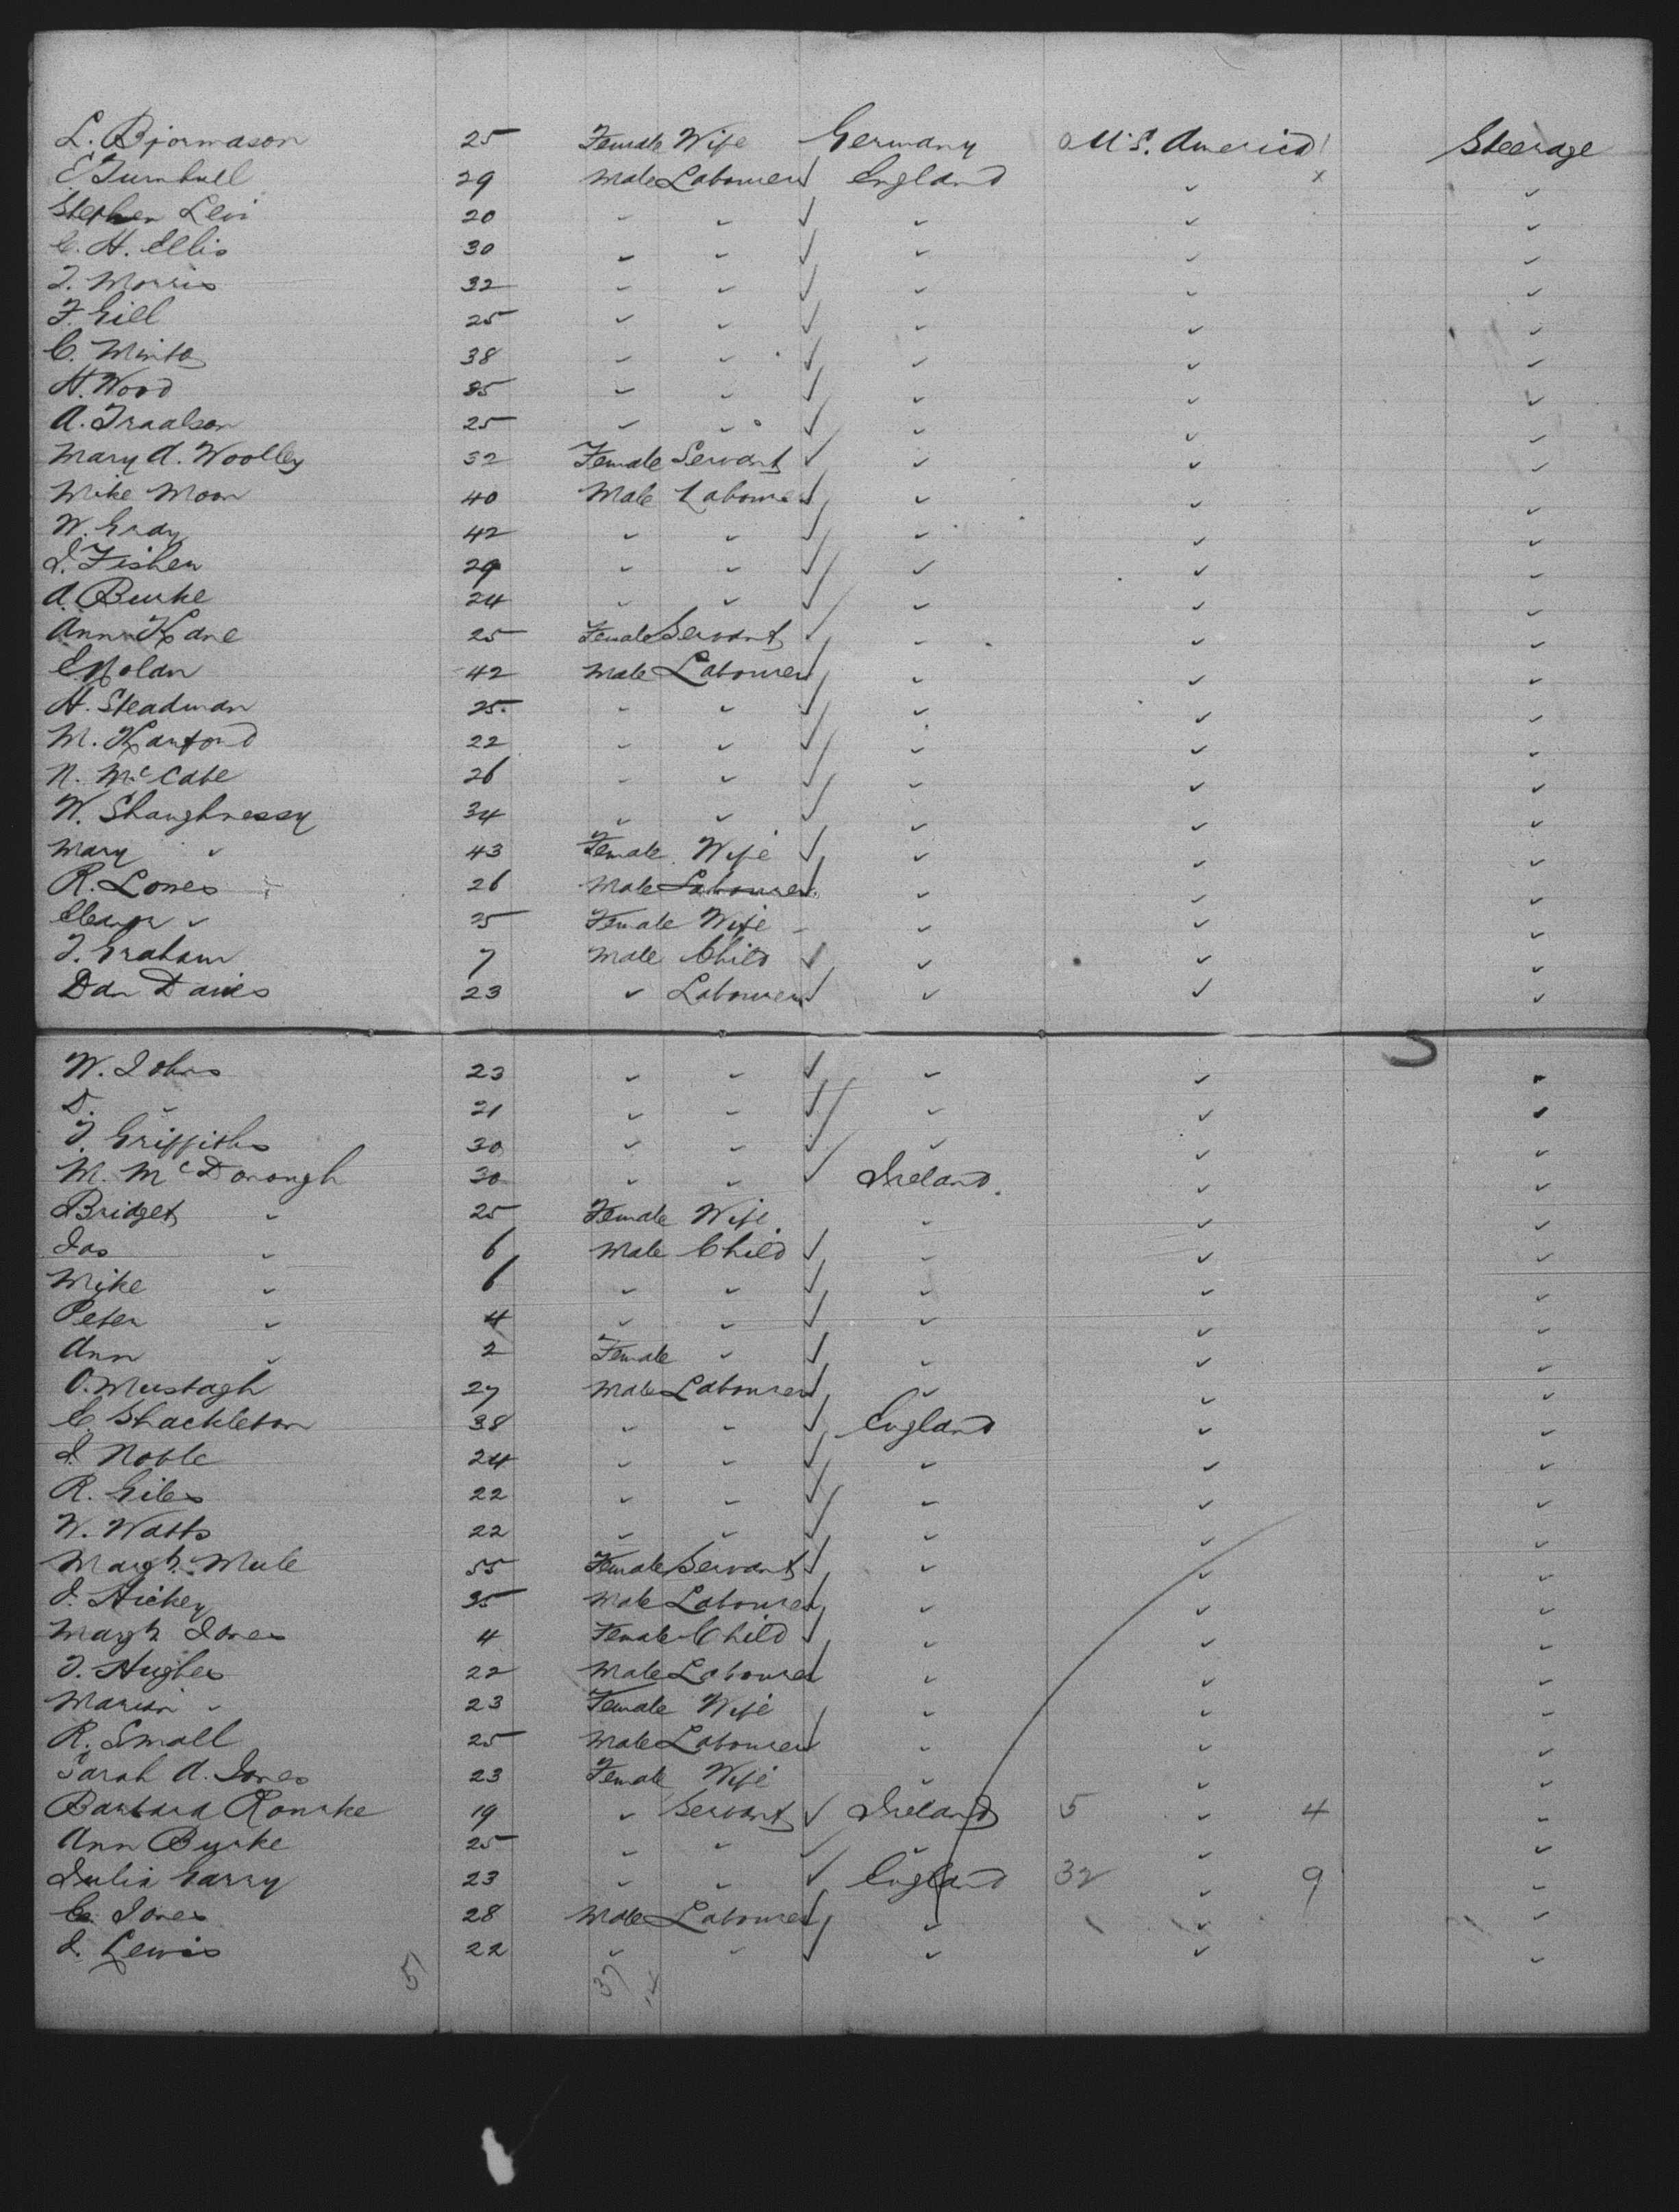 L. Bjornason 25 Female Wife Germany U.S. America Steerage
E Turnbull 29 Male Labourer England " "
Stephen Levi 20 " " " " "
C. H. Ellis 30 " " " " "
T. Morris 32 " " " " "
F. Gill 25 " " " " "
C. Minto 38 " " " " "
H. Wood 35 " " " " "
A. Traalson 25 " " " " "
Mary A. Woolley 32 Female Servant " " "
Mike Moon 40 Male Labourer " " "
W. Grady 42 " " " " "
J. Fisher 29 " " " " "
A. Burke 24 " " " " "
Ann Kane 25 Female Servant " " "
E Nolan 42 Male Labourer " " "
H. Steadman 25 " " " " "
M. Hanford 22 " " " " "
N. McCabe 26 " " " " "
W. Shaughnessy 34 " " " " "
Mary " 43 Female Wife " " "
R. Lones 26 Male Labourer " " "
Eleanor " 25 Female Wife " " "
T. Graham 7 Male Child " " "
Dan Davies 23 " Labourer " " "
W. Johns 23 " " " " "
D. " 21 " " " " "
T. Griffiths 30 " " " " "
M. McDonough 30 " " Ireland " "
Bridget " 25 Female Wife " " "
Jas " 6 Male Child " " "
Mike " 6 " " " " "
Peter " 4 " " " " "
Ann " 2 Female " " " "
O. Murtagh 27 Male Labourer " " "
C. Shackleton 38 " " England " "
J. Noble 24 " " " " "
R. Giles 22 " " " " "
W. Watts 22 " " " " "
Margt. Mule 55 Female Servant " " "
J. Hickey 35 Male Labourer " " "
Margt Jones 4 Female Child " " "
T. Hughes 22 Male Labourer " " "
Marion " 23 Female Wife " " "
R. Small 25 Male Labourer " " "
Sarah A. Jones 23 Female Wife " " "
Barbara Rourke 19 " Servant Ireland 5 " 4 "
Ann Burke 25 " " " " "
Julia Garry 23 " " England 32 " 9 "
C. Jones 28 Male Labourer " " "
J. Lewis 22 " " " " "
51 37 14